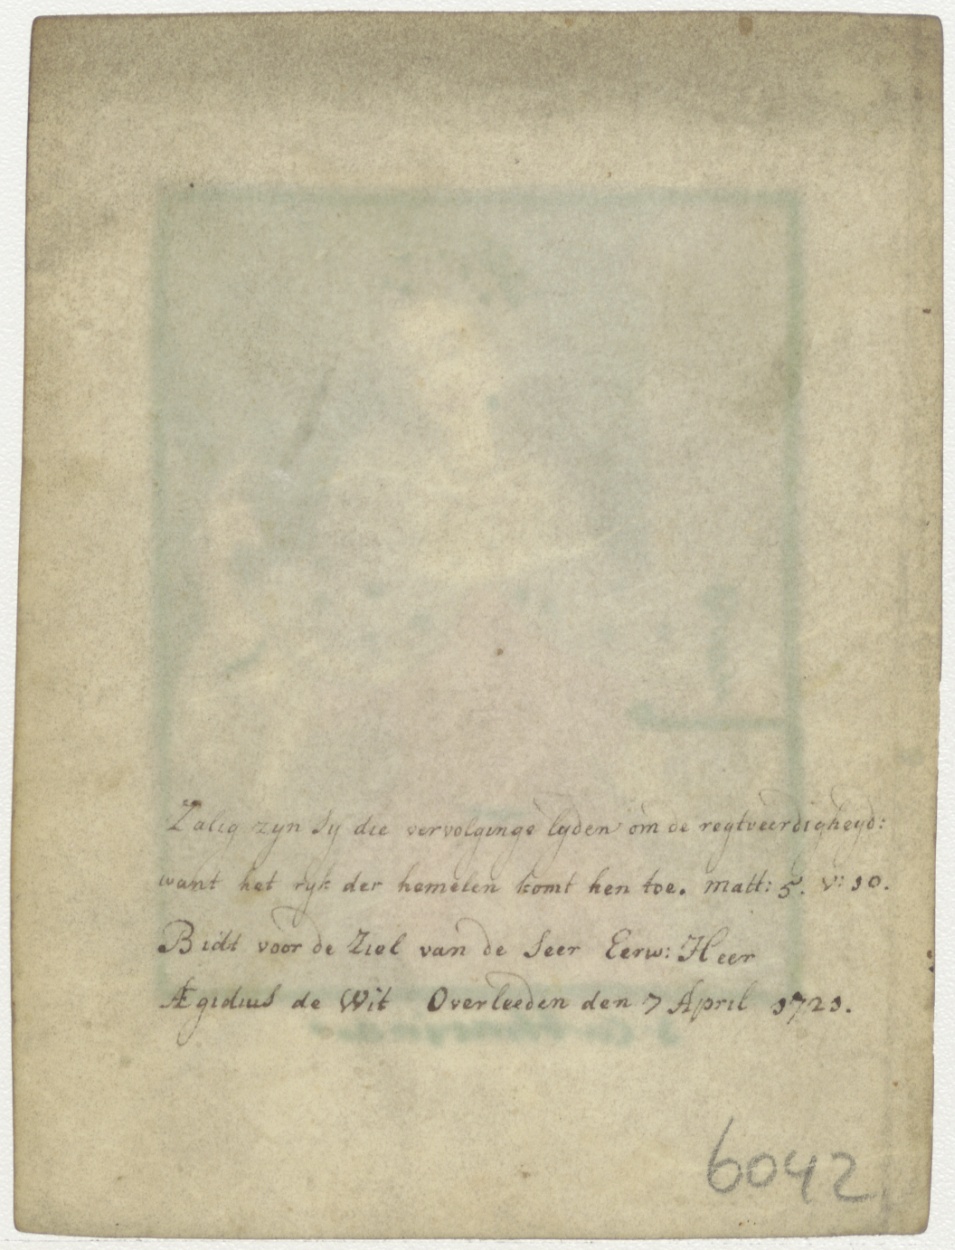 Zalig zyn sy die vervolginge lyden om de regtveerdigheyd:
want het ryk der hemelen komt hen toe. Matt: 5. v: 10.
Bidt voor de Ziel van de Seer Eerw: Heer
Ægidius de Wit Overleeden den 7 April 1721.
6042